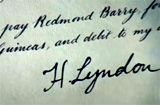 pay Redmond Barry fo
uineas, and debt to my
H Lyndon